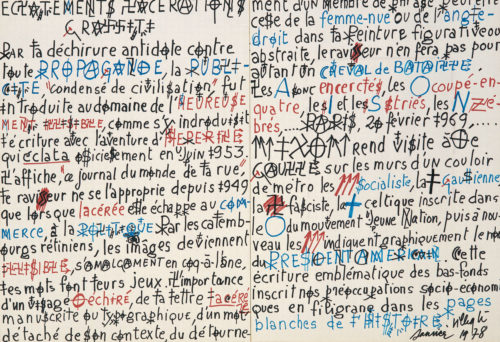 ECLATEMENTS LACERATIONS
GRAFFITI
PAR la déchirure antidote contre
toute PROPAGANDE, la PUBLI-
CITE "condensé de civilisation" fut
introduite au domaine de l'HEUREUSE
MENT ILLISIBLE comme s'y introduisit
l'écriture avec l'aventure d'HEPERILE
qui éclata officiellement en "juin 1953
L'affiche, "ce journal du monde de la rue"
le raviseur ne se l'approprie depuis 1949
que lorsque lacérée elle échappe au COM-
MERCE, à la POLITIQUE. Par les calemb-
ours rétiniens, les images deviennent
ILLISIBLE, s'AMALGAMENT en coq-à-l'âne,
les mots font leurs jeux. L'importance
d'un visage déchiré, de la lettre lacérée
manuscrite ou typographique, d'un mot
détaché de son contexte, du détourne-
ment d'un membre de phrase peut être
celle de la femme-nue ou de l'angle-
droit dans la peinture figurative ou
abstraite, le raviseur n'en fera pas pour
autant un CHEVAL de BATAILLE.
Les A donc encerclés, les O coupé-en-
quatre, les I et les S striés, les N zé-
brés......PARIS, 20 février 1969.....
NIXON REND VISITE à De
GAULLE sur les murs d'un couloir
de métro les socialiste, la ‡ gaullienne,
fasciste, la + celtique inscrite dans
le O du mouvement Jeune Nation, puis à nou-
veau les indiquent graphiquement le nom
du PRESIDENT AMERICAIN. Cette
écriture emblématique des bas-fonds
inscrit nos préoccupations socio-économi-
ques en filigrane dans les pages
blanches de l'HISTOIRE. Villeglé
Janvier 1978